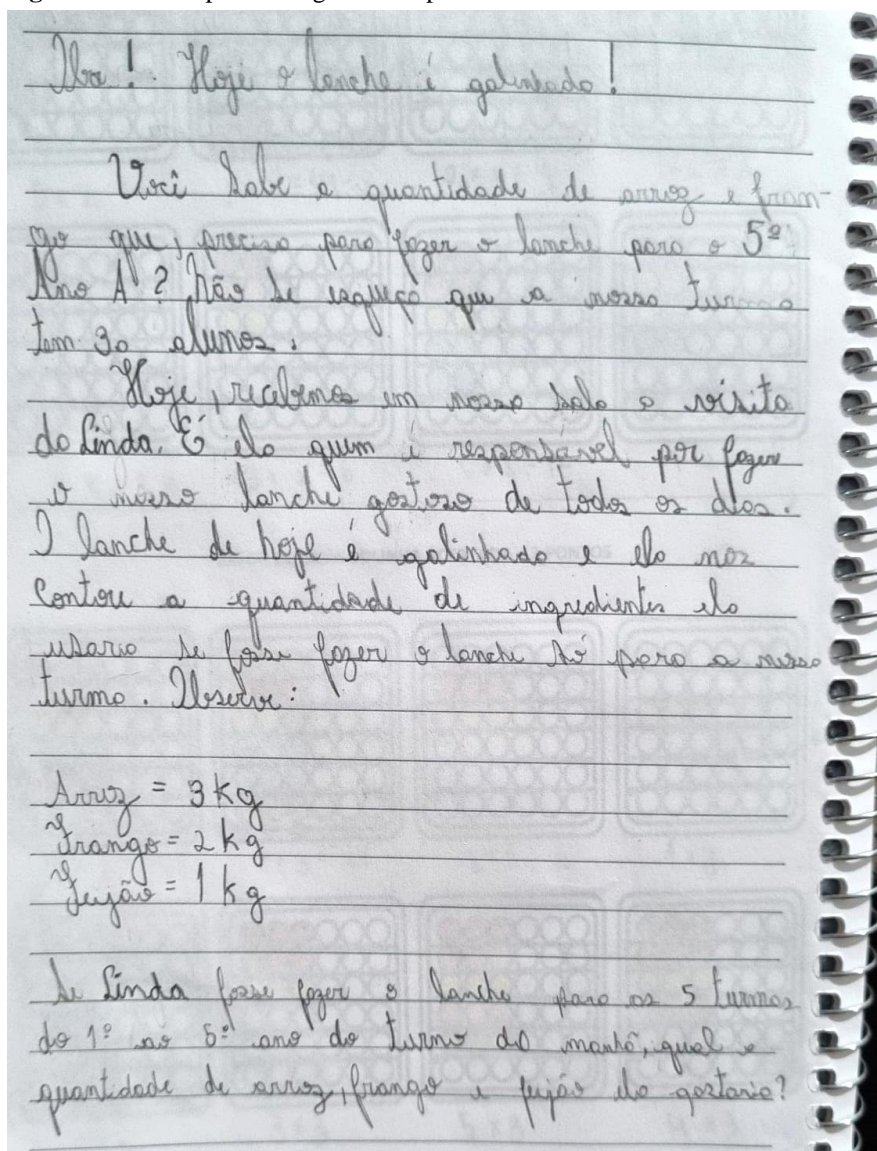 Oba! Hoje o lanche é galinhada!
Você sabe a quantidade de arroz e fran-
go que, preciso para fazer o lanche para o 5º
Ano A? Não se esqueça que a nossa turma
tem 30 alunos.
Hoje, recebemos em nossa sala a visita
da Linda. É ela quem é responsável por fazer
o nosso lanche gostoso de todos os dias.
O lanche de hoje é galinhada e ela nos
contou a quantidade de ingredientes ela
usaria se fosse fazer o lanche só para a nossa
turma. Observe:
Arroz = 3 kg
Frango = 2 kg
Feijão = 1 kg
Se Linda fosse fazer o lanche para as 5 turmas
do 1º ao 5º ano do turno da manhã, qual a
quantidade de arroz, frango e feijão ela gastaria?